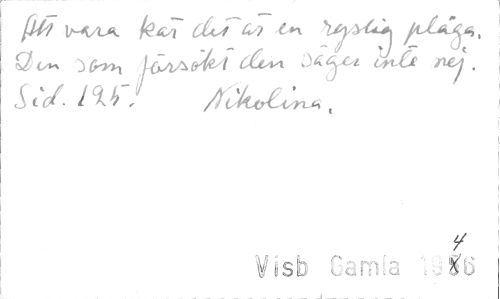 Att vara kär det är en ryslig plåga.
Den som försökt den säger inte nej.
Sid. 125. Nikolina.
4
Visb Gamla 1986